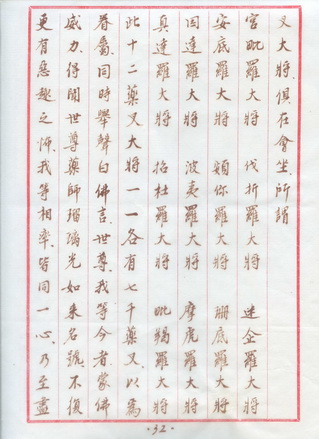 叉大將俱在會坐所謂
宮毗羅大將 伐折羅大將 迷企羅大將
安底羅大將 頞你羅大將 珊底羅大將
因達羅大將 波夷羅大將 摩虎羅大將
真達羅大將 招杜羅大將 毗羯羅大將
此十二藥叉大將一一各有七千藥叉以為
眷屬同時舉聲白佛言世尊我等今者蒙佛
威力得聞世尊藥師瑠璃光如來名號不復
更有惡趣之怖我等相率皆同一心乃至盡
·32·